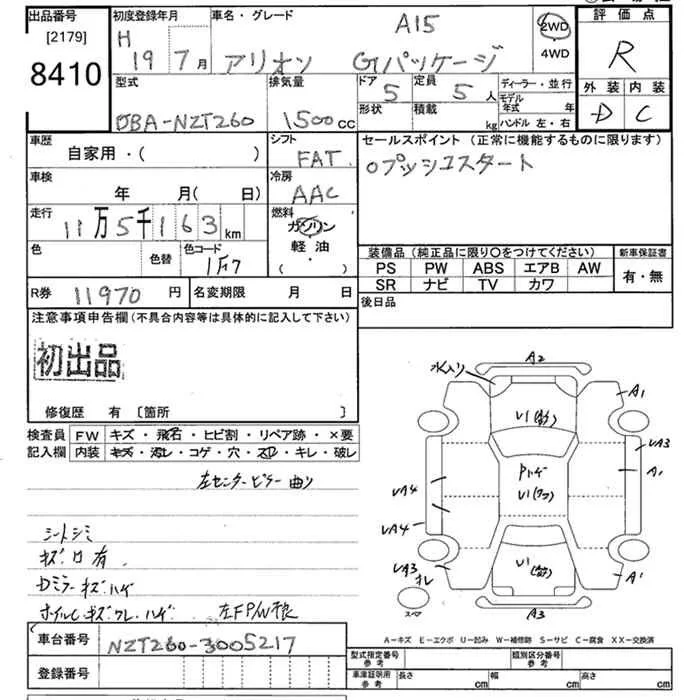 出品番号 初度登録年月 車名・グレード A15 2WD 評価点
[2179] H 19 7月 アリオン G1パッケージ 4WD R
8410 型式 排気量 ドア 5 定員 5人 ディーラー・並行 外装 内装
形状 積載 kg モデル年式 年 D C
DBA-NZT260 1500cc ハンドル 左・右
車歴 シフト セールスポイント (正常に機能するものに限ります)
自家用・( ) FAT
冷房 ○プッシュスタート
車検 年 月(日) AAC
走行 11万5千163km 燃料
ガソリン
色 色替 色コード 1F7 軽油・( )
装備品(純正品に限り○をつけてください) 新車保証書
PS PW ABS エアB AW 有・無
SR ナビ TV カワ
R券 11970円 名変期限 月 日 後日品
注意事項申告欄(不具合内容等は具体的に記入して下さい)
初出品
修復歴 有 [箇所 ]
検査員 FW キズ・飛石・ヒビ割・リペア跡・×要
記入欄 内装 キズ・汚レ・コゲ・穴・スレ・キレ・破レ
左センターピラー曲り
シートシミ
キズ・凹有
Dミラーキズハゲ
ホイルCキズ・ワレ・ハゲ 左FP/W不良
水入り A2
A1
U1
UA3
Pハゲ A1
U1(ワフ)
UA4
UA4
UA3 オレ U1 A1
スペア A3
A-キズ E-エクボ U-凹み W-補修跡 S-サビ C-腐食 XX-交換済
車台番号 NZT260-3005217
型式指定番号 参考 類別区分番号 参考
登録番号 車庫証明用 参考 長さ cm 幅 cm 高さ cm